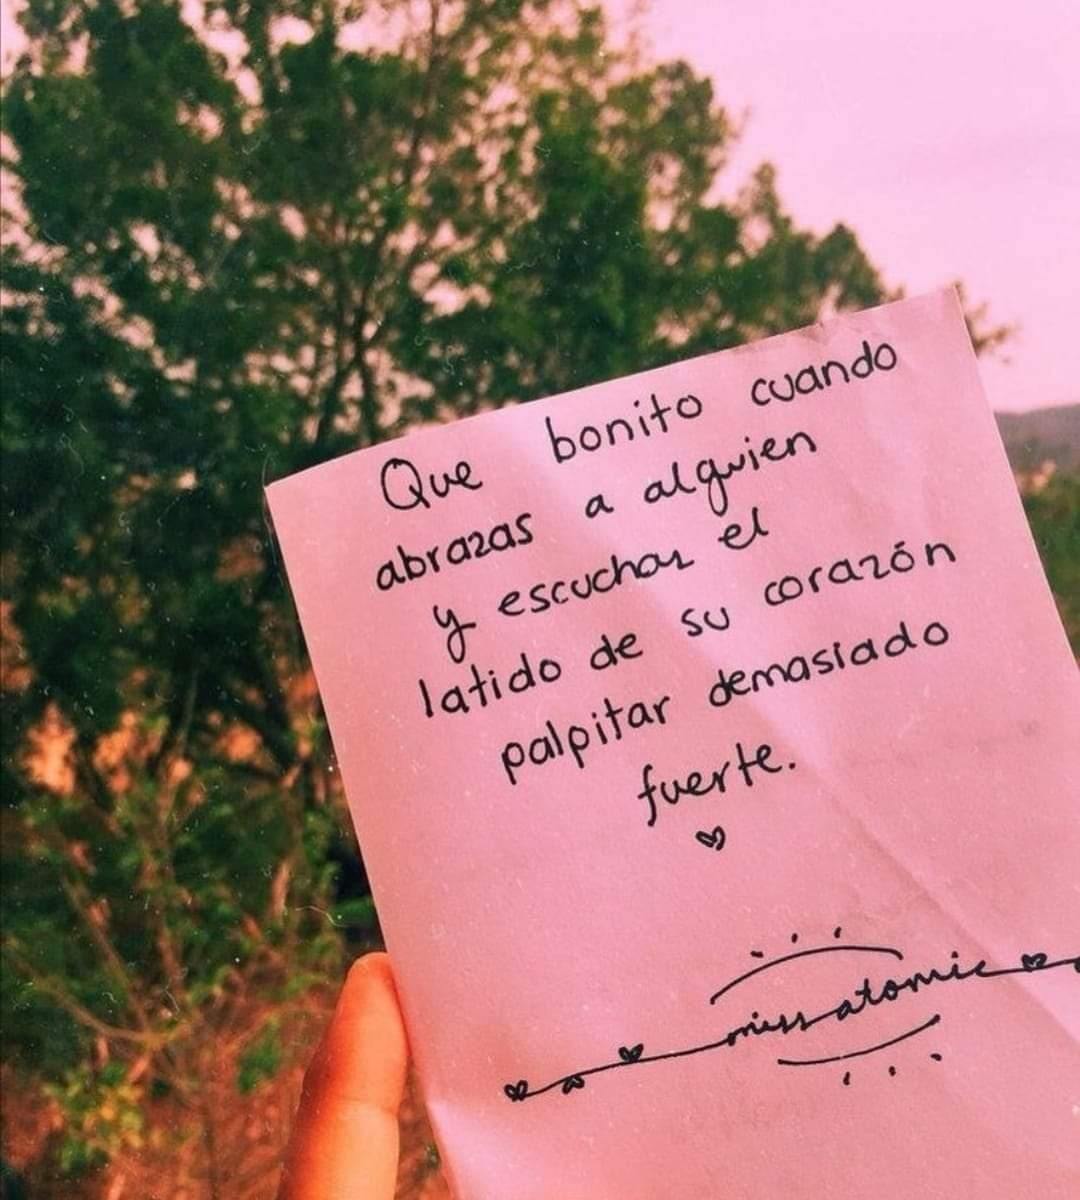 Que bonito cuando
abrazas a alguien
y escuchas el
latido de su corazón
palpitar demasiado
fuerte.
miss atomic